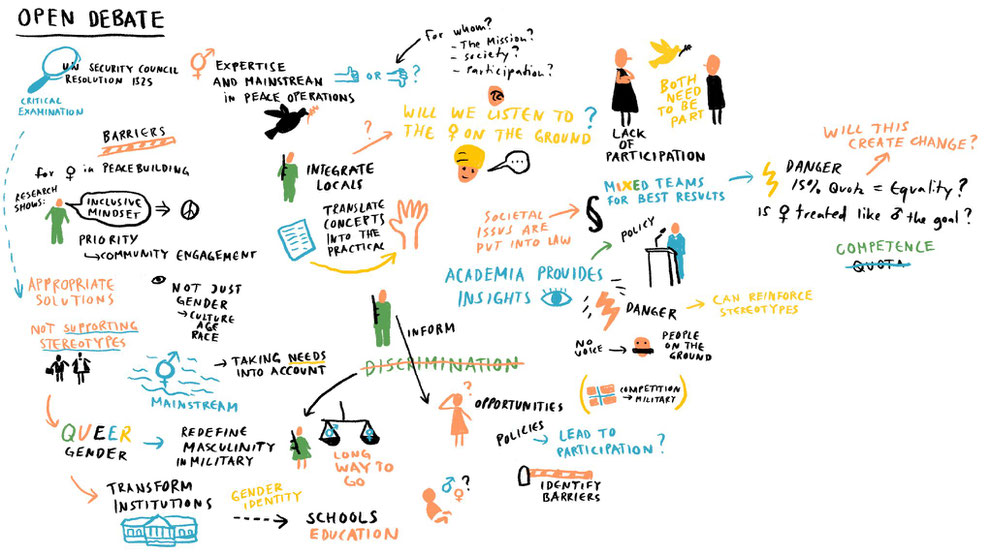 OPEN DEBATE
UN SECURITY COUNCIL
RESOLUTION 1525
CRITICAL
EXAMINATION
EXPERTISE
AND MAINSTREAM
IN PEACE OPERATIONS
OR ?
for whom?
- The Mission?
- society?
- Participation?
BARRIERS
for ♀ in PEACEBUILDING
RESEARCH
SHOWS:
INCLUSIVE
MINDSET
PRIORITY
COMMUNITY ENGAGEMENT
?
INTEGRATE
LOCALS
WILL WE LISTEN TO
THE ♀ ON THE GROUND
?
...
LACK
OF
PARTICIPATION
BOTH
NEED
TO BE
PART
TRANSLATE
CONCEPTS
INTO THE
PRACTICAL
SOCIETAL
ISSUS ARE
PUT INTO LAW
§
MIXED TEAMS
FOR BEST RESULTS
DANGER
15% Quote = Equality?
is ♀ treated like ♂ the goal?
WILL THIS
CREATE CHANGE?
COMPETENCE
QUOTA
ACADEMIA PROVIDES
INSIGHTS
POLICY
DANGER
CAN REINFORCE
STEREOTYPES
NO
VOICE
PEOPLE
ON THE
GROUND
COMPETITION
→ MILITARY
APPROPRIATE
SOLUTIONS
NOT JUST
GENDER
CULTURE
AGE
RACE
NOT SUPPORTING
STEREOTYPES
MAINSTREAM
TAKING NEEDS
INTO ACCOUNT
INFORM
DISCRIMINATION
LONG
WAY TO
GO
?
OPPORTUNITIES
POLICIES
LEAD TO
PARTICIPATION ?
IDENTIFY
BARRIERS
♂♀?
QUEER
GENDER
REDEFINE
MASCULINITY
IN MILITARY
TRANSFORM
INSTITUTIONS
GENDER
IDENTITY
SCHOOLS
EDUCATION